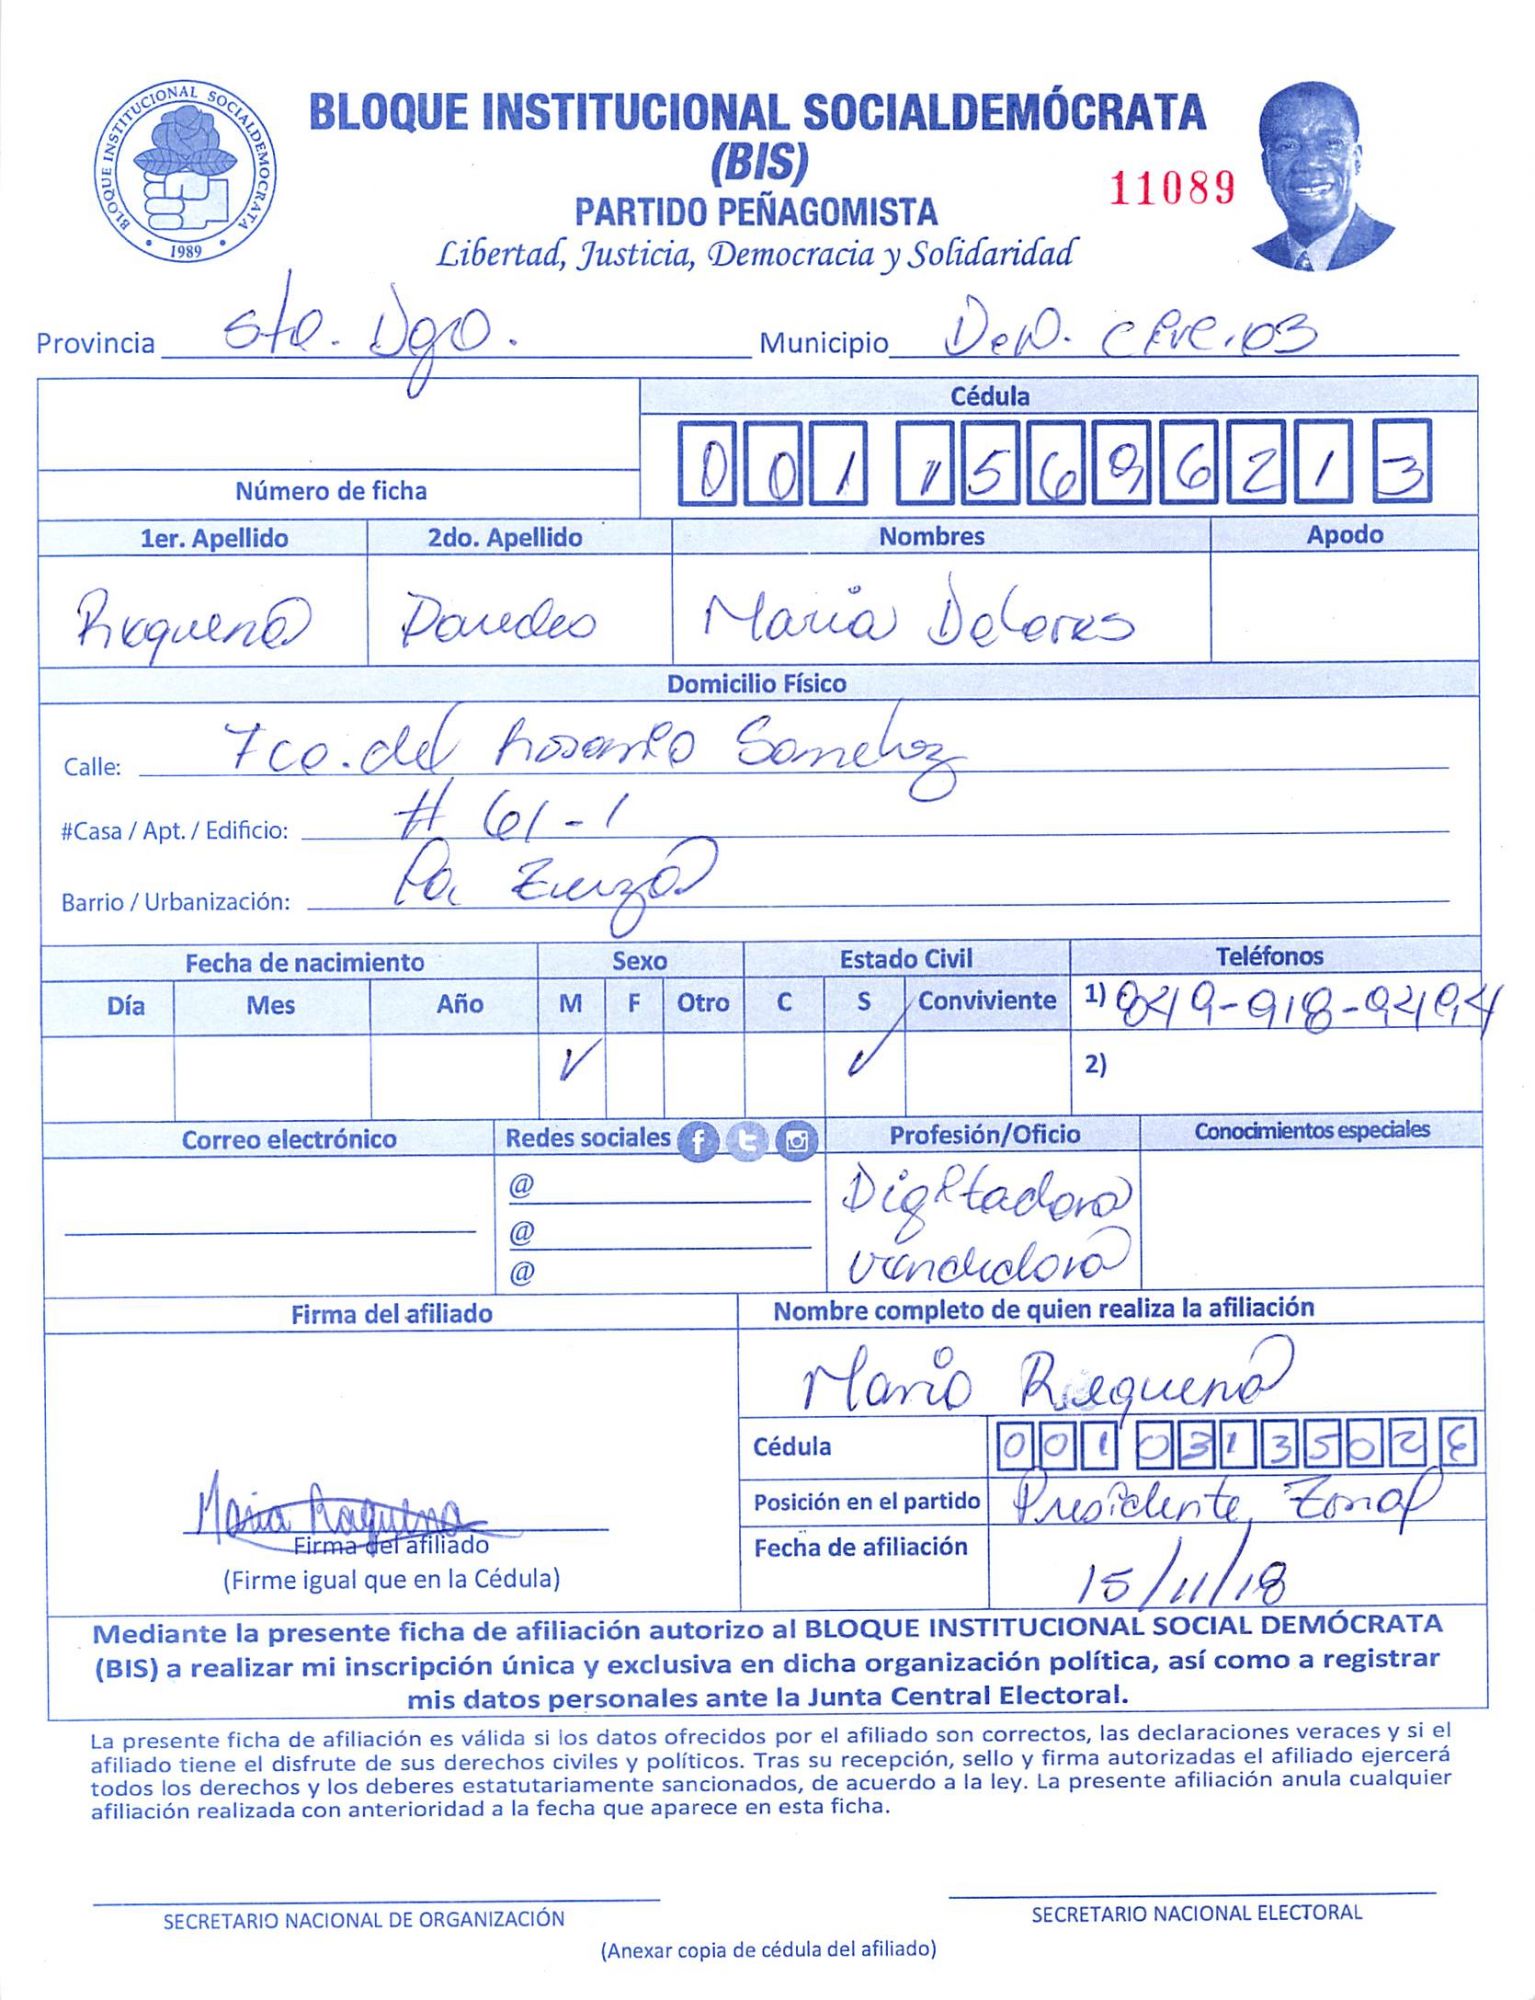 BLOQUE INSTITUCIONAL SOCIALDEMÓCRATA
(BIS)
PARTIDO PEÑAGOMISTA
Libertad, Justicia, Democracia y Solidaridad
11089
BLOQUE INSTITUCIONAL SOCIALDEMOCRATA
1989
Provincia Sto. Dgo. Municipio 03
Cédula
001 1569621 3
Número de ficha
1er. Apellido 2do. Apellido Nombres Apodo
Requena Paredes Maria Dolores
Domicilio Físico
Calle: Fco. del Rosario Sanchez
#Casa / Apt. / Edificio: # 61-1
Barrio / Urbanización: La
Fecha de nacimiento Sexo Estado Civil Teléfonos
Día Mes Año M F Otro C S Conviviente 1) 849-918-9494
2)
Correo electrónico Redes sociales Profesión/Oficio Conocimientos especiales
@
@
@
Digitadora
Vendedora
Firma del afiliado Nombre completo de quien realiza la afiliación
Maria Requena
Cédula 001 0313502
Posición en el partido Presidente Zonal
Fecha de afiliación 15/11/18
Maria Requena
Firma del afiliado
(Firme igual que en la Cédula)
Mediante la presente ficha de afiliación autorizo al BLOQUE INSTITUCIONAL SOCIAL DEMÓCRATA
(BIS) a realizar mi inscripción única y exclusiva en dicha organización política, así como a registrar
mis datos personales ante la Junta Central Electoral.
La presente ficha de afiliación es válida si los datos ofrecidos por el afiliado son correctos, las declaraciones veraces y si el
afiliado tiene el disfrute de sus derechos civiles y políticos. Tras su recepción, sello y firma autorizadas el afiliado ejercerá
todos los derechos y los deberes estatutariamente sancionados, de acuerdo a la ley. La presente afiliación anula cualquier
afiliación realizada con anterioridad a la fecha que aparece en esta ficha.
SECRETARIO NACIONAL DE ORGANIZACIÓN SECRETARIO NACIONAL ELECTORAL
(Anexar copia de cédula del afiliado)